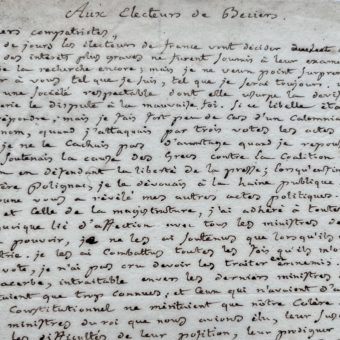 Aux Electeurs de Beziers.
ers compatriotes,
de jours les électeurs de france vont décider
des intérêts plus graves ne furent soumis à leur exame
la recherche encore; mais je ne veux point surpre
à vous tel que je suis, tel que je serai toujours.
une société respectable dont elle usurpe la devis
rie le dispute à la mauvaise foi. Si ce libelle éta
répondre; mais je fais fort peu de cas d'un calomnia
nom, quand j'attaquais par trois votes les actes
je ne le cachais pas d'avantage quand je repous
soutenais la cause des Grecs contre la Coalition
en défendant la liberté de la presse; lorsqu'enfin
ère polignac, je le dévouais à la haine publique
une vous a révélé mes autres actes politiques.
et celle de la magistrature, j'ai adhéré à toutes
quoique lié d'affection avec tous les ministres de
pouvoir, je ne les ai soutenus que lorsqu'ils
trie. je les ai combattus toutes les fois qu'ils m'o
vote, je n'ai pas cru devoir les traiter en ennemis.
acerbe, intraitable envers les derniers ministres d
taient que trop connues; et ceux qui n'avaient d'a
Constitutionnel ne méritaient que notre Colère
ministres du roi que nous avions élu, leur sus
les difficultés de leur position, leur prodiguer